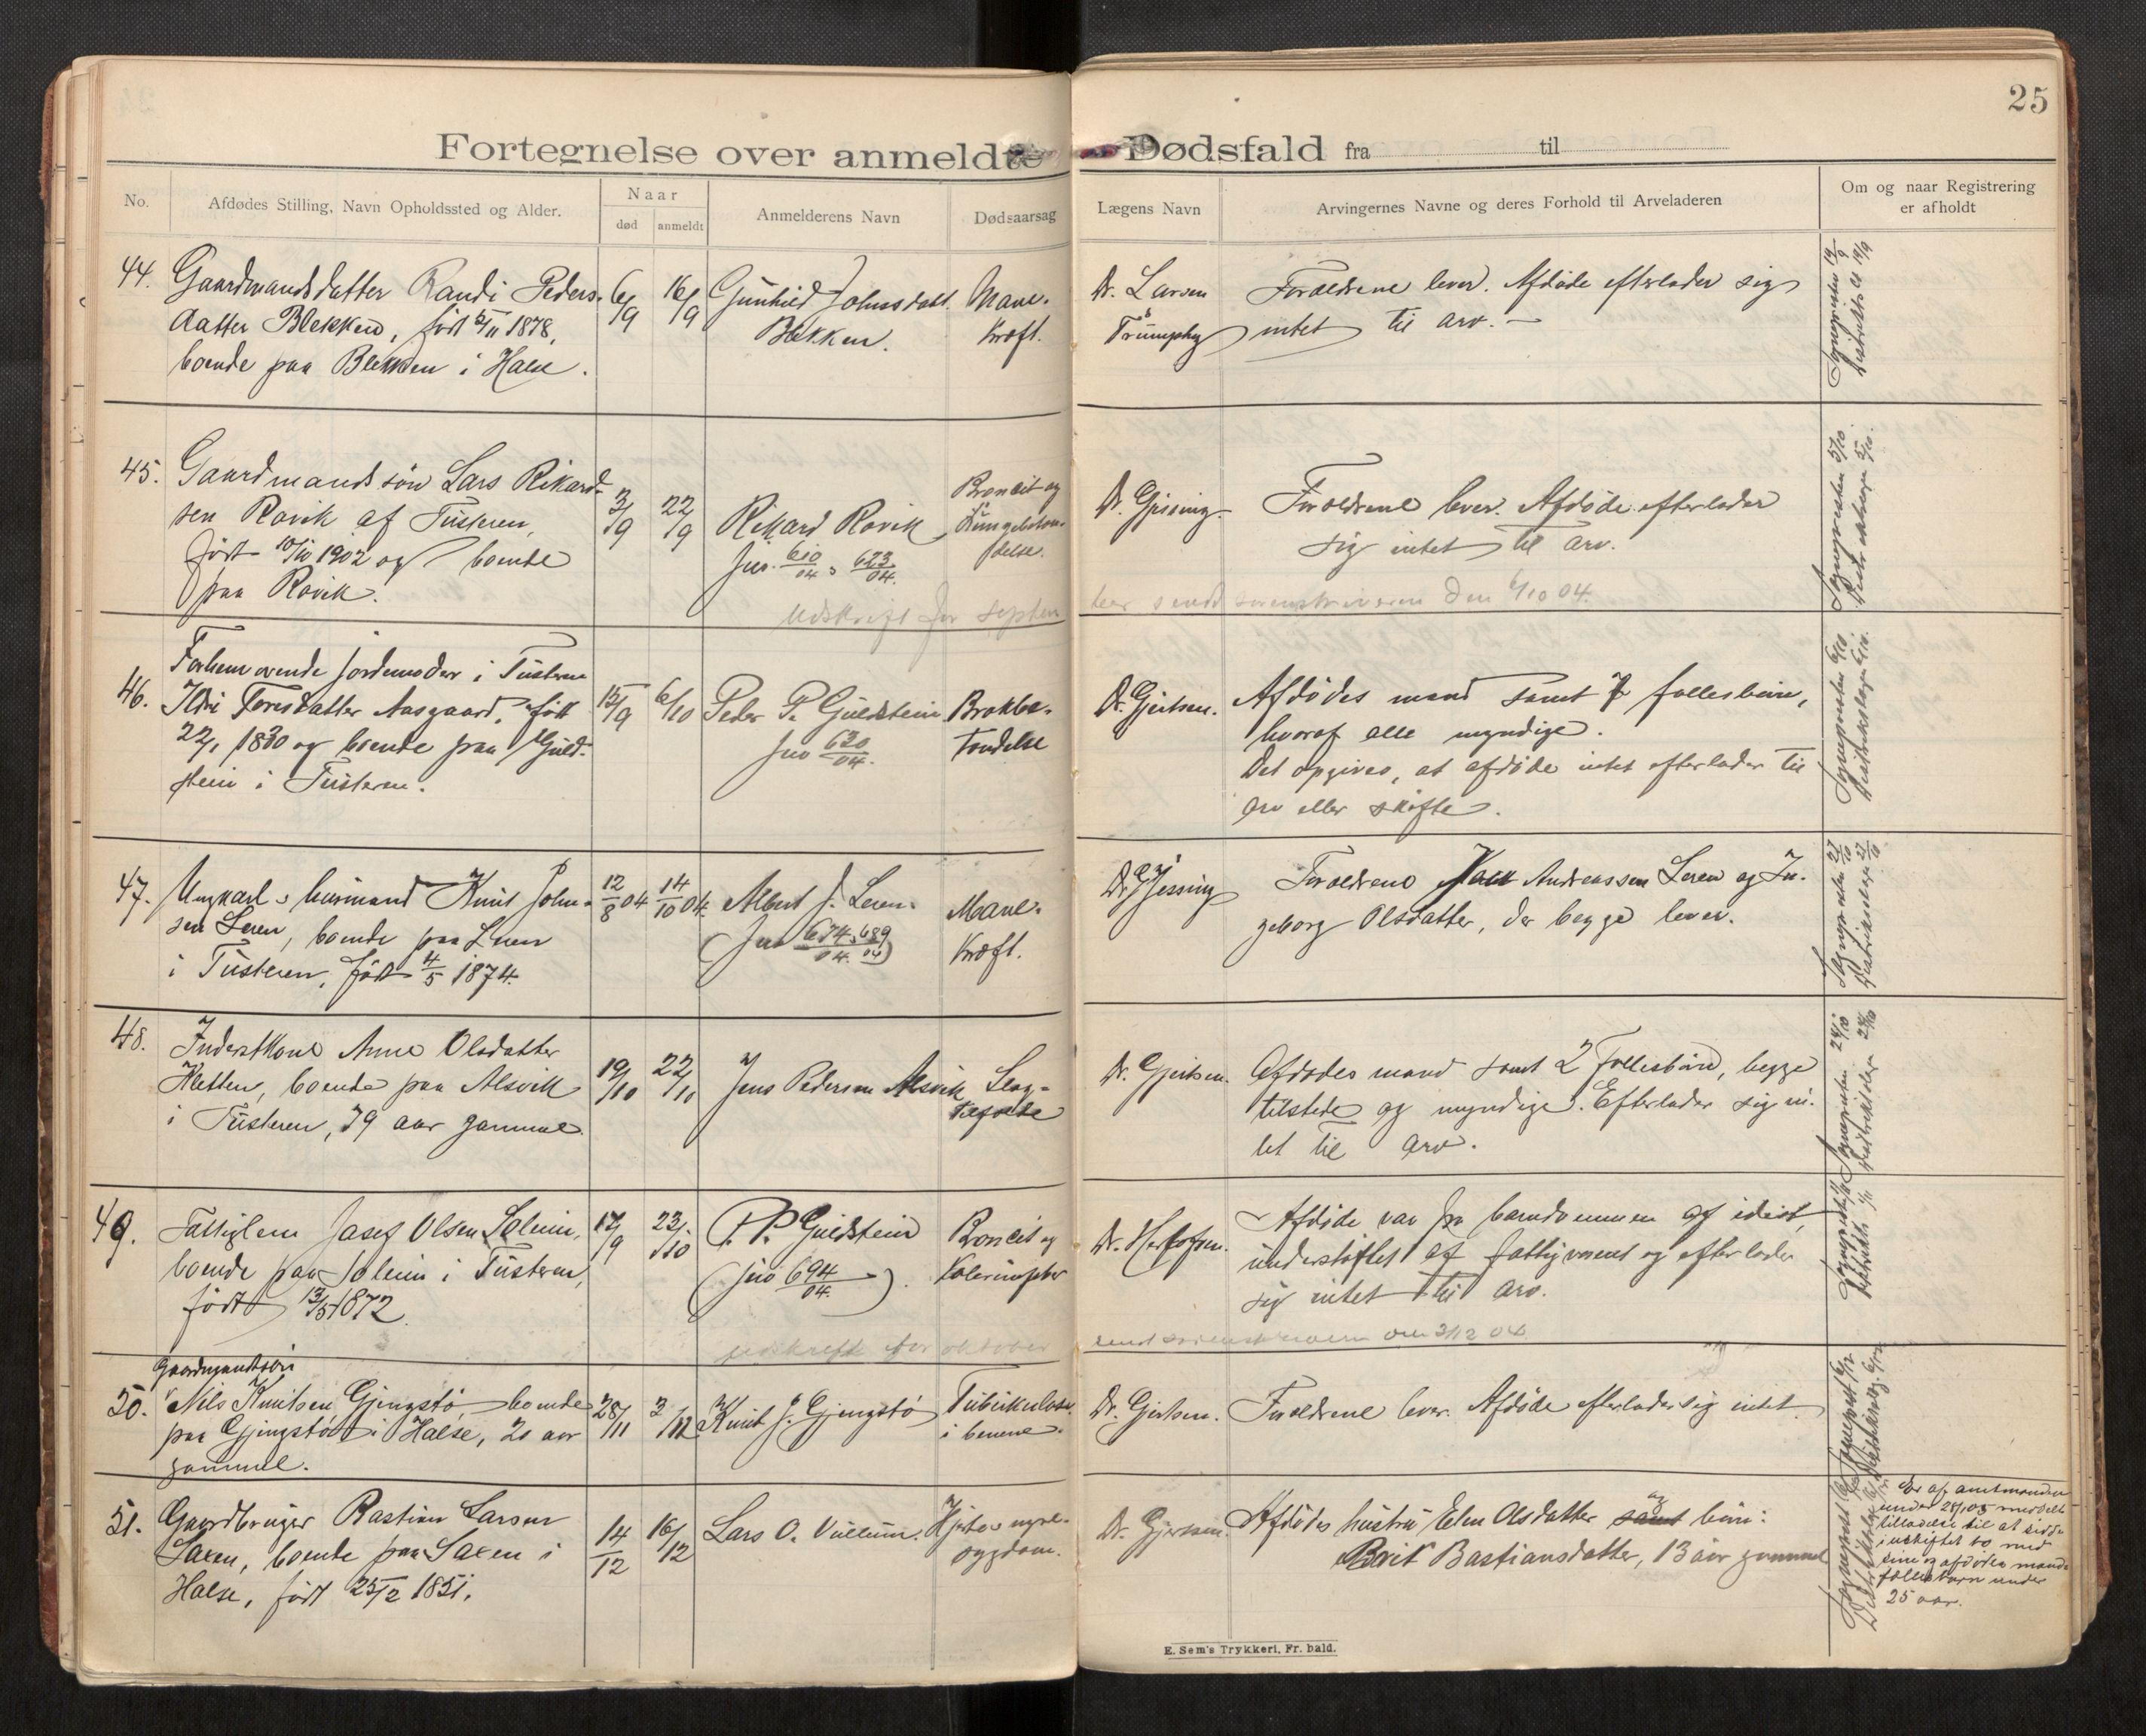 25
Fortegnelse over anmeldte Dødsfald fra til
No.
Afdødes Stilling, Navn Opholdssted og Alder.
Naar
død
anmeldt
Anmelderens Navn
Dødsaarsag
Lægens Navn
Arvingernes Navne og deres Forhold til Arveladeren
Om og naar Registrering
er afholdt
44.
Gaardmandsdatter Randi Peders-
datter Blekken, født 5/11 1878,
boende paa Blekken i Halse.
6/9
16/9
Gunhild Johnsdatt.
Blekken.
Mave-
kræft.
Dr. Larsen
Forældrene lever. Afdøde efterlader sig
intet til arv. —
Sogneprästen 19/9
45.
Gaardmandssøn Lars Rikard-
sen Rovik af Tusteren,
født 10/10 1902 og boende
paa Rovik.
3/9
22/9
Rikard Rovik
Jnr. 610/04, 623/04.
Broncit og
delse.
Dr. Gjessing.
Forældrene lever. Afdøde efterlader
sig intet til arv.
Udskrift for septem
sendt sorenskriveren den 6/10 04.
46.
Forhenværende jordemoder i Tusteren
Ildri Toresdatter Aasgaard, født
22/1 1830 og boende paa Guld-
stein i Tusteren.
15/9
6/10
Peder P. Guldstein
Jno 630/04.
Brokbe-
tændelse
Dr. Gjertsen.
Afdødes mand samt 7 fællesbørn,
hvoraf alle myndige.
Det opgives, at afdøde intet efterlader til
arv eller skifte.
47.
Ungkarl, husmand Knut John-
sen Leren, boende paa Leren
i Tusteren, født 4/5 1874.
12/8 04
14/10 04.
Albert J. Leren.
(Jno 674/04. 689/04)
Mave-
kræft.
Dr. Gjessing
Forældrene John Andreassen Leren og In-
geborg Olsdatter, der begge lever.
48.
Inderstkone Anne Olsdatter
Kletten, boende paa Alsvik
i Tusteren, 79 aar gammel.
19/10
22/10
Jens Pedersen Alsvik
Slag-
tilfælde
Dr. Gjertsen.
Afdødes mand samt 2 fællesbørn, begge
tilstede og myndige. Efterlader sig in-
tet til arv.
49.
Fattiglem Josef Olsen Soleim,
boende paa Soleim i Tusteren,
født 13/5 1872.
17/9
23/10
P. P. Guldstein
(Jno 694/04.)
Broncit og
Dr. Herlofsen.
Afdøde var fra barndommen af idiot,
understøttet af fattigvæsenet og efterlader
sig intet til arv.
udskrift for oktober
sendt sorenskriveren den 3/12 04
50.
Gaardmandssøn
Nils Knutsen Gjengstø, boende
paa Gjengstø i Halse, 20 aar
gammel.
28/11
3/12
Knut J. Gjengstø
Tuberkulose
i benene.
Dr. Gjertsen.
Forældrene lever. Afdøde efterlader sig intet.
51.
Gaardbruger Bastian Larsen
Saxen, boende paa Saxen i
Halse, født 25/2 1851.
14/12
16/12
Lars O. Vullum.
Hjerte, nyre-
sygdom.
Dr. Gjertsen.
Afdødes hustru Elen Olsdatter samt og barn:
Brit Bastiansdatter, 13 aar gammel
Er af amtmanden
under 28/1 05 meddelt
tilladelse til at sidde
i uskiftet bo med
sine og afdøde mands
fællesbarn under
25 aar.
E. Sem's Trykkeri, Fr. hald.